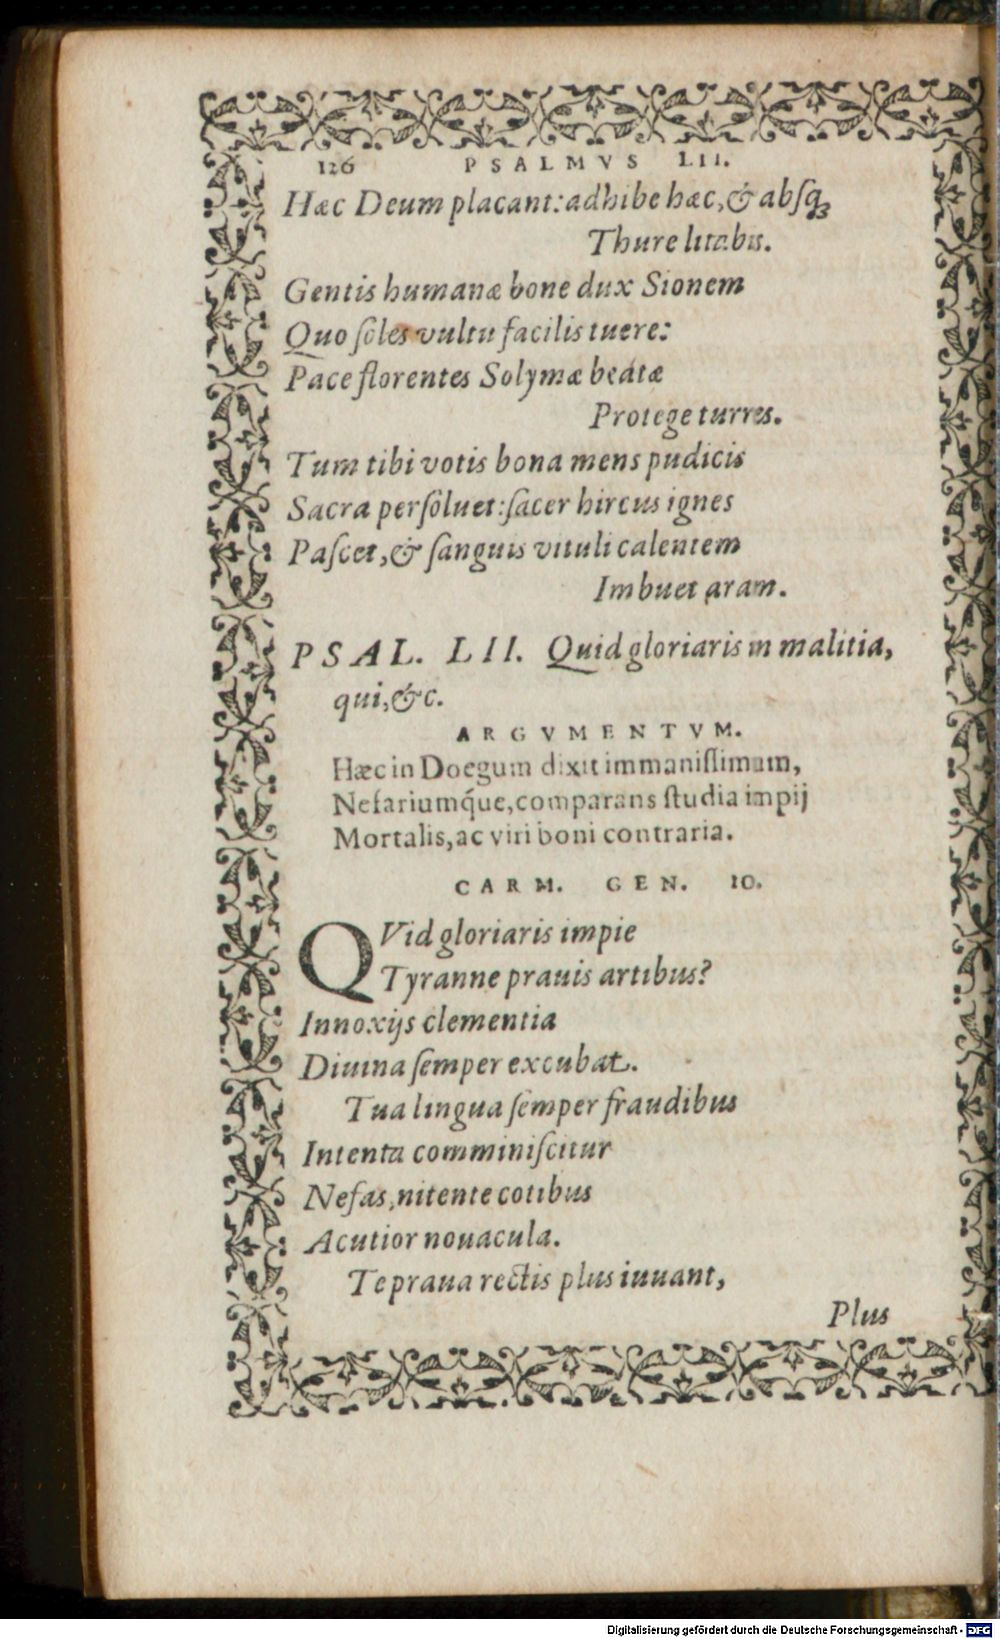 126 PSALMVS LII.
Hæc Deum placant: adhibe hæc, & absq;
Thure litabis.
Gentis humanæ bone dux Sionem
Quo soles vultu facilis tuere:
Pace florentes Solymæ beatæ
Protege turres.
Tum tibi votis bona mens pudicis
Sacra persoluet: sacer hircus ignes
Pascet, & sanguis vituli calentem
Imbuet aram.
PSAL. LII. Quid gloriaris in malitia,
qui, &c.
ARGVMENTVM.
Hæc in Doegum dixit immanissimum,
Nefariumq́ue, comparans studia impij
Mortalis, ac viri boni contraria.
CARM. GEN. 10.
QVid gloriaris impie
Tyranne prauis artibus?
Innoxijs clementia
Diuina semper excubat.
Tua lingua semper fraudibus
Intenta comminiscitur
Nefas, nitente cotibus
Acutior nouacula.
Te praua rectis plus iuuant,
Plus
Digitalisierung gefördert durch die Deutsche Forschungsgemeinschaft - DFG